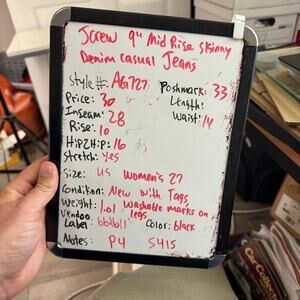 Jcrew 9" Mid Rise Skinny
Denim Casual Jeans
Style #: AG727 Poshmark: 33
Price: 30 Length:
Inseam: 28 Waist: 14
Rise: 10
Hip2Hip: 16
Stretch: yes
Size: US Women's 27
Condition: New with Tags
Weight: 1.01 washable marks on legs
Vendoo
Label Color: black
Notes: P4 S415